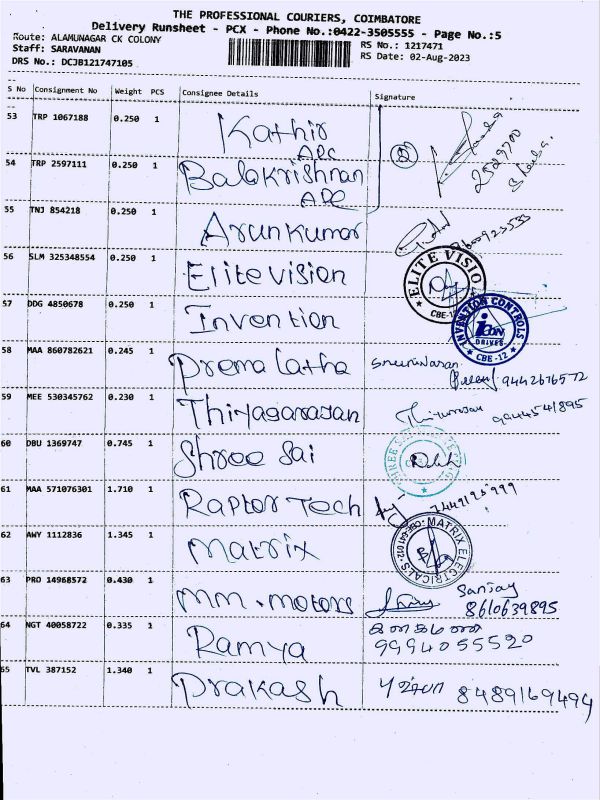 THE PROFESSIONAL COURIERS, COIMBATORE
Delivery Runsheet - PCX - Phone No.:0422-3505555 - Page No.:5
Route: ALAMUNAGAR CK COLONY
RS No.: 1217471
Staff: SARAVANAN
RS Date: 02-Aug-2023
DRS No.: DCJB121747105
S No Consignment No Weight PCS Consignee Details Signature
53 TRP 1067188 0.250 1 Kathir
APC
54 TRP 2597111 0.250 1 Balakrishnan
APC
55 TNJ 854218 0.250 1 Arunkumar
56 SLM 325348554 0.250 1 Elite vision
ELITE VISION
CBE-12
57 DDG 4850678 0.250 1 Invention
INVENTION CONTROLS
icon
DRIVES
CBE-12
58 MAA 860782621 0.245 1 Prema latha
9442676572
59 MEE 530345762 0.230 1 Thiyagarasan
9944541895
60 DBU 1369747 0.745 1 Shree Sai
61 MAA 571076301 1.710 1 Raptor Tech
62 AWY 1112836 1.345 1 Matrix
MATRIX ELECTRICALS
63 PRO 14968572 0.430 1 MM.motors Sanjay
8610639895
64 NGT 40058722 0.335 1 Ramya
9994055520
65 TVL 387152 1.340 1 Prakash 8489169494